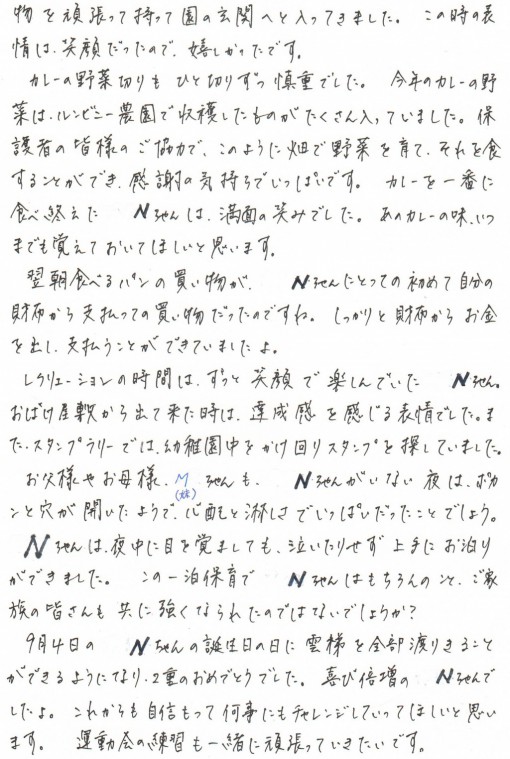 物を頑張って持って園の玄関へと入ってきました。この時の表
情は、笑顔だったので、嬉しかったです。
カレーの野菜切りもひと切りずつ慎重でした。今年のカレーの野
菜は、ルンビニー農園で収穫したものがたくさん入っていました。保
護者の皆様のご協力で、このように畑で野菜を育て、それを食
することができ、感謝の気持ちでいっぱいです。カレーを一番に
食べ終えた Nちゃんは、満面の笑みでした。あのカレーの味、いつ
までも覚えておいてほしいと思います。
翌朝食べるパンの買い物が、 Nちゃんにとっての初めて自分の
財布から支払っての買い物だったのですね。しっかりと財布からお金
を出し、支払うことができていましたよ。
レクリエーションの時間は、ずっと笑顔で楽しんでいた Nちゃん。
おばけ屋敷から出て来た時は、達成感を感じる表情でした。ま
た、スタンプラリーでは、幼稚園中をかけ回りスタンプを探していました。
お父様やお母様、Mちゃんも、 Nちゃんがいない夜は、ポカ
(妹)
ンと穴が開いたようで、心配と淋しさでいっぱいだったことでしょう。
Nちゃんは、夜中に目を覚ましても、泣いたりせず上手にお泊り
ができました。この一泊保育で Nちゃんはもちろんのこと、ご家
族の皆さんも共に強くなられたのではないでしょうか?
9月4日の Nちゃんの誕生日の日に雲梯を全部渡りきること
ができるようになり、2重のおめでとうでした。喜び倍増の Nちゃんで
したよ。これからも自信もって何事にもチャレンジしていってほしいと思い
ます。 運動会の練習も一緒に頑張っていきたいです。